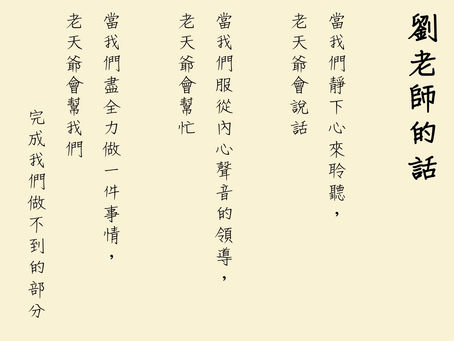 劉老師的話
當我們靜下心來聆聽，
老天爺會說話
當我們服從內心聲音的領導，
老天爺會幫忙
當我們盡全力做一件事情，
老天爺會幫我們
完成我們做不到的部分